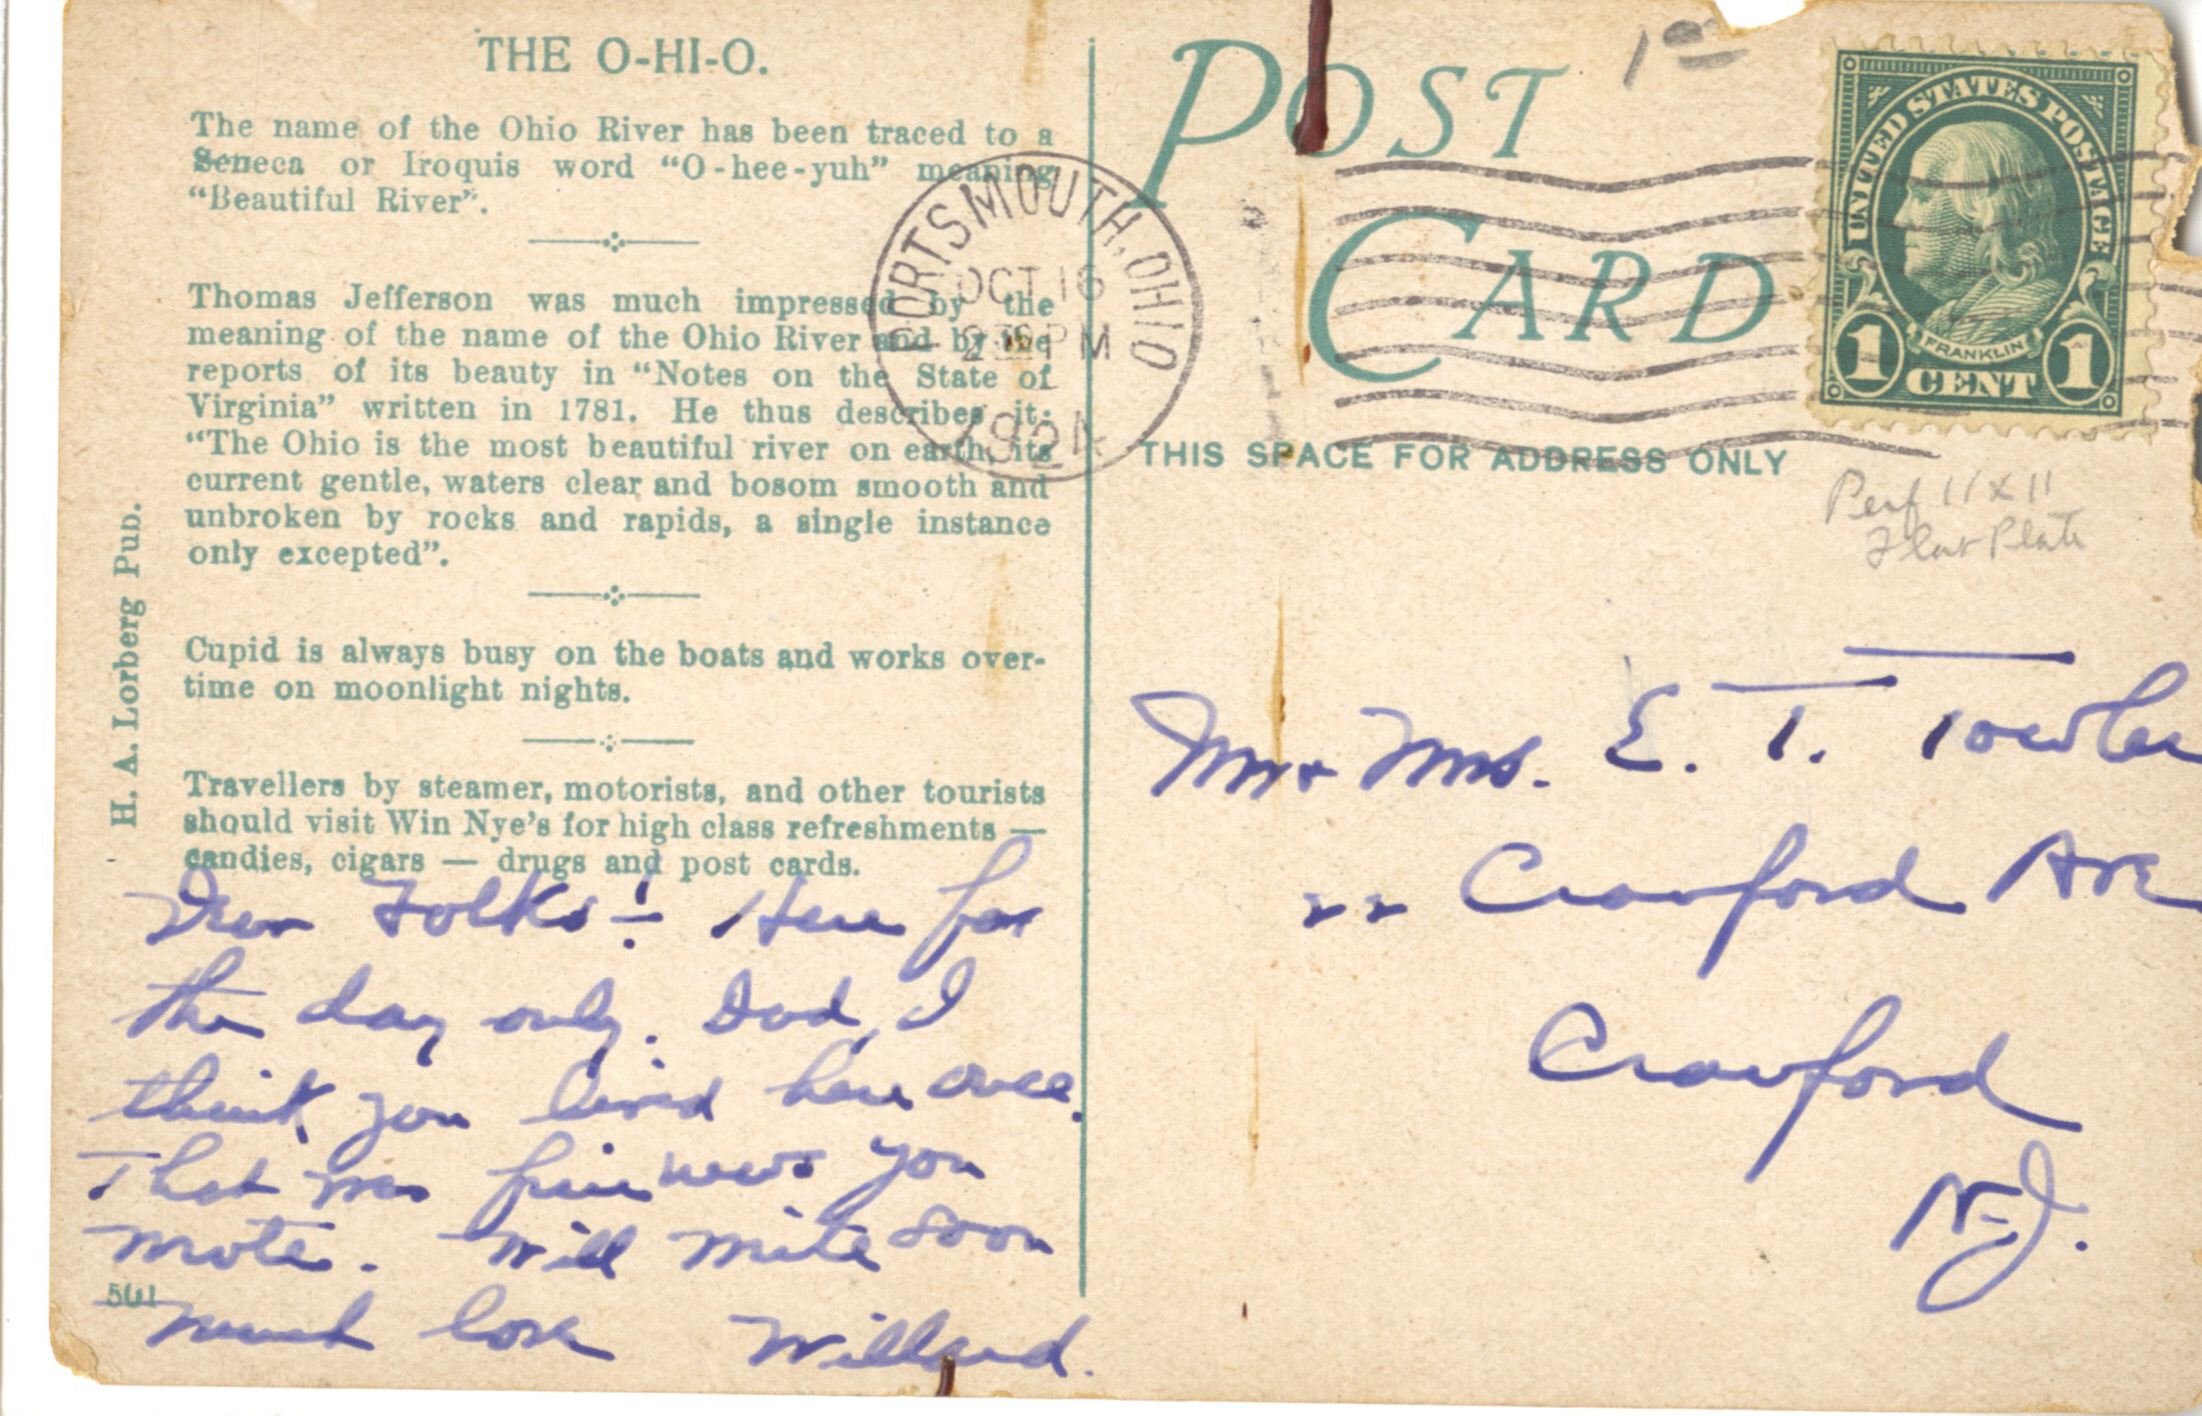 THE O-HI-O.
The name of the Ohio River has been traced to a
Seneca or Iroquis word "O-hee-yuh" meaning
"Beautiful River".
Thomas Jefferson was much impressed by the
meaning of the name of the Ohio River and by the
reports of its beauty in "Notes on the State of
Virginia" written in 1781. He thus describes it:
"The Ohio is the most beautiful river on earth, its
current gentle, waters clear and bosom smooth and
unbroken by rocks and rapids, a single instance
only excepted".
Cupid is always busy on the boats and works over-
time on moonlight nights.
Travellers by steamer, motorists, and other tourists
should visit Win Nye's for high class refreshments —
candies, cigars — drugs and post cards.
H. A. Lorberg Pub.
Dear Folks:- Here for
the day only. Dad, I
think you lived here once.
That was fine news you
wrote. Will write soon
Much love Willard.
501
POST
CARD
THIS SPACE FOR ADDRESS ONLY
PORTSMOUTH, OHIO
OCT 16
PM
192
1 00
UNITED STATES POSTAGE
FRANKLIN
1 CENT 1
Perf 11 x 11
Flat Plate
Mr + Mrs. E. T. Towler
22 Cranford Ave
Cranford
N.J.